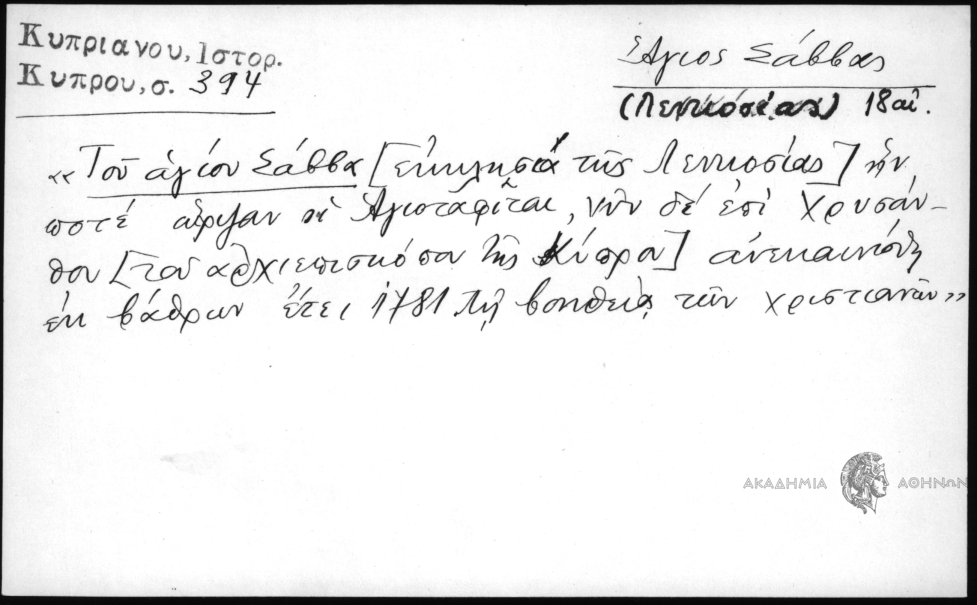 Κυπριανου, Ιστορ.
Κυπρου, σ. 394
Ἅγιος Σάββας
(Λευκοσίας) 18 αἰ.
«Τοῦ ἁγίου Σάββα [ἐκκλησία τῆς Λευκοσίας] ἣν
ποτέ εἶχαν οἱ Ἁγιοταφῖται, νῦν δέ ἐπί Χρυσάν-
θου [τοῦ ἀρχιεπισκόπου τῆς Κύπρου] ἀνεκαινίσθη
ἐκ βάθρων ἔτει 1781 τῇ βοηθείᾳ τῶν χριστιανῶν»
ΑΚΑΔΗΜΙΑ ΑΘΗΝΩΝ